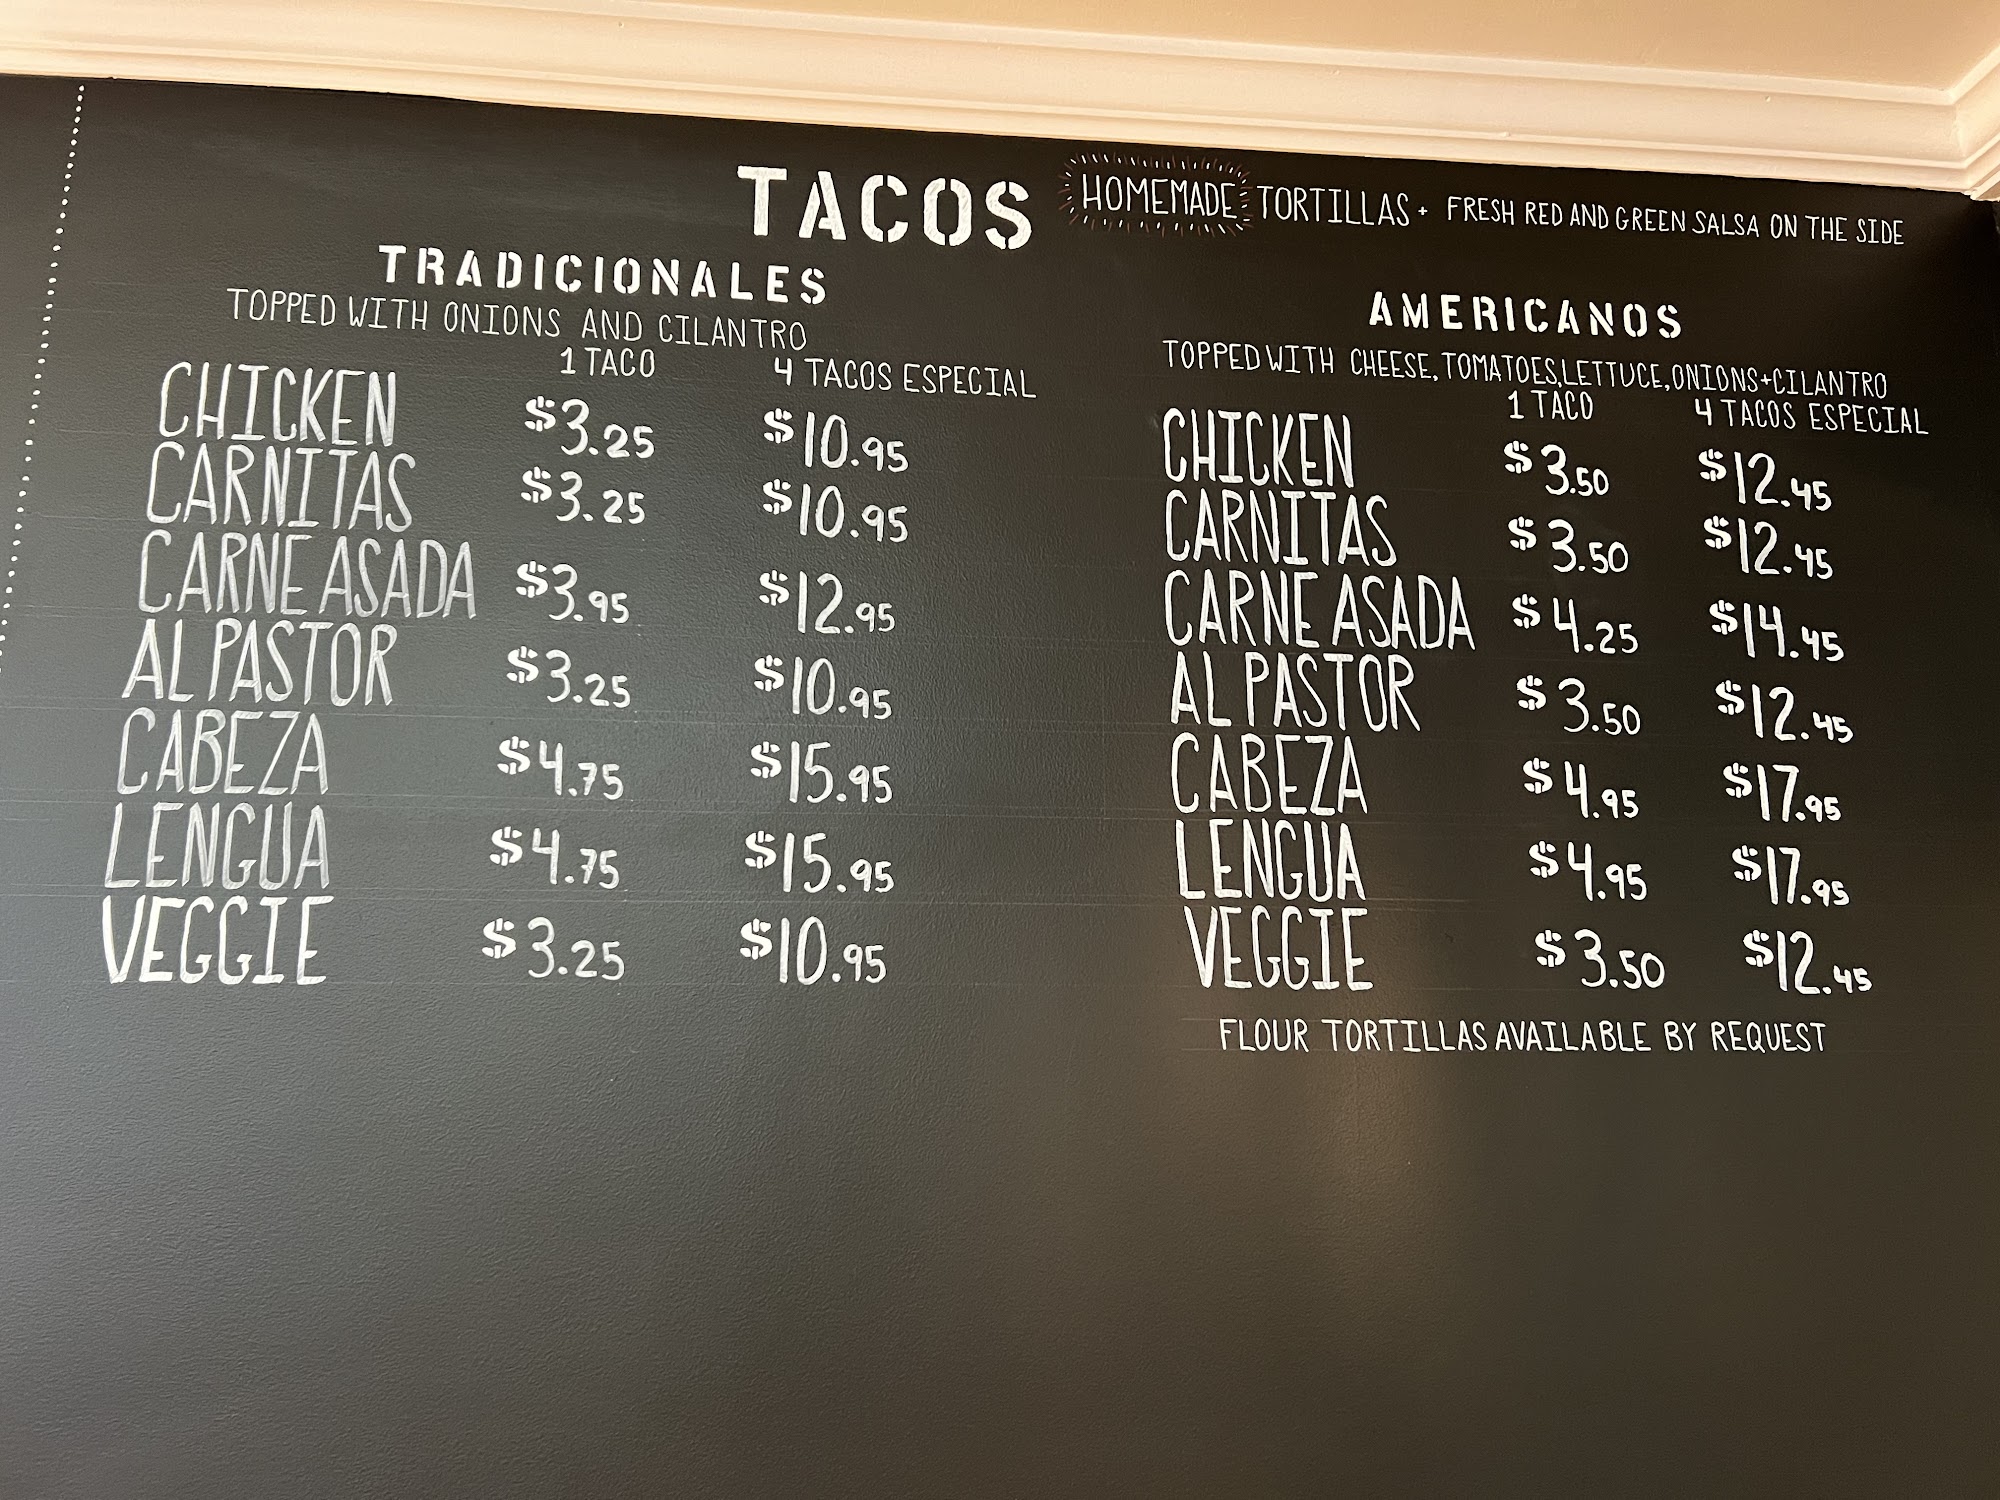 TACOS HOMEMADE TORTILLAS + FRESH RED AND GREEN SALSA ON THE SIDE
TRADICIONALES
TOPPED WITH ONIONS AND CILANTRO
1 TACO 4 TACOS ESPECIAL
CHICKEN $3.25 $10.95
CARNITAS $3.25 $10.95
CARNE ASADA $3.95 $12.95
AL PASTOR $3.25 $10.95
CABEZA $4.75 $15.95
LENGUA $4.75 $15.95
VEGGIE $3.25 $10.95
AMERICANOS
TOPPED WITH CHEESE, TOMATOES, LETTUCE, ONIONS + CILANTRO
1 TACO 4 TACOS ESPECIAL
CHICKEN $3.50 $12.45
CARNITAS $3.50 $12.45
CARNE ASADA $4.25 $14.45
AL PASTOR $3.50 $12.45
CABEZA $4.95 $17.95
LENGUA $4.95 $17.95
VEGGIE $3.50 $12.45
FLOUR TORTILLAS AVAILABLE BY REQUEST